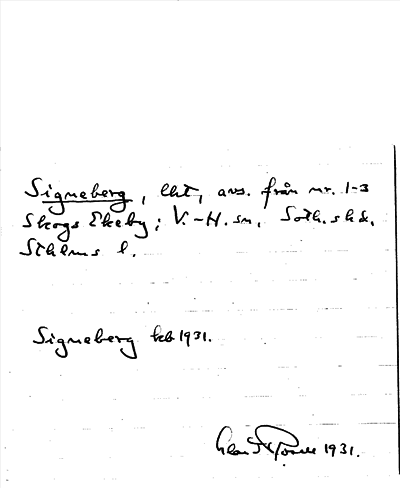 Signeberg, lht, avs. från nr. 1-3
Skogs Ekeby; V.-H. sn, Soth. skd.
Sthlms l.
Signeberg kb 1931.
1931.